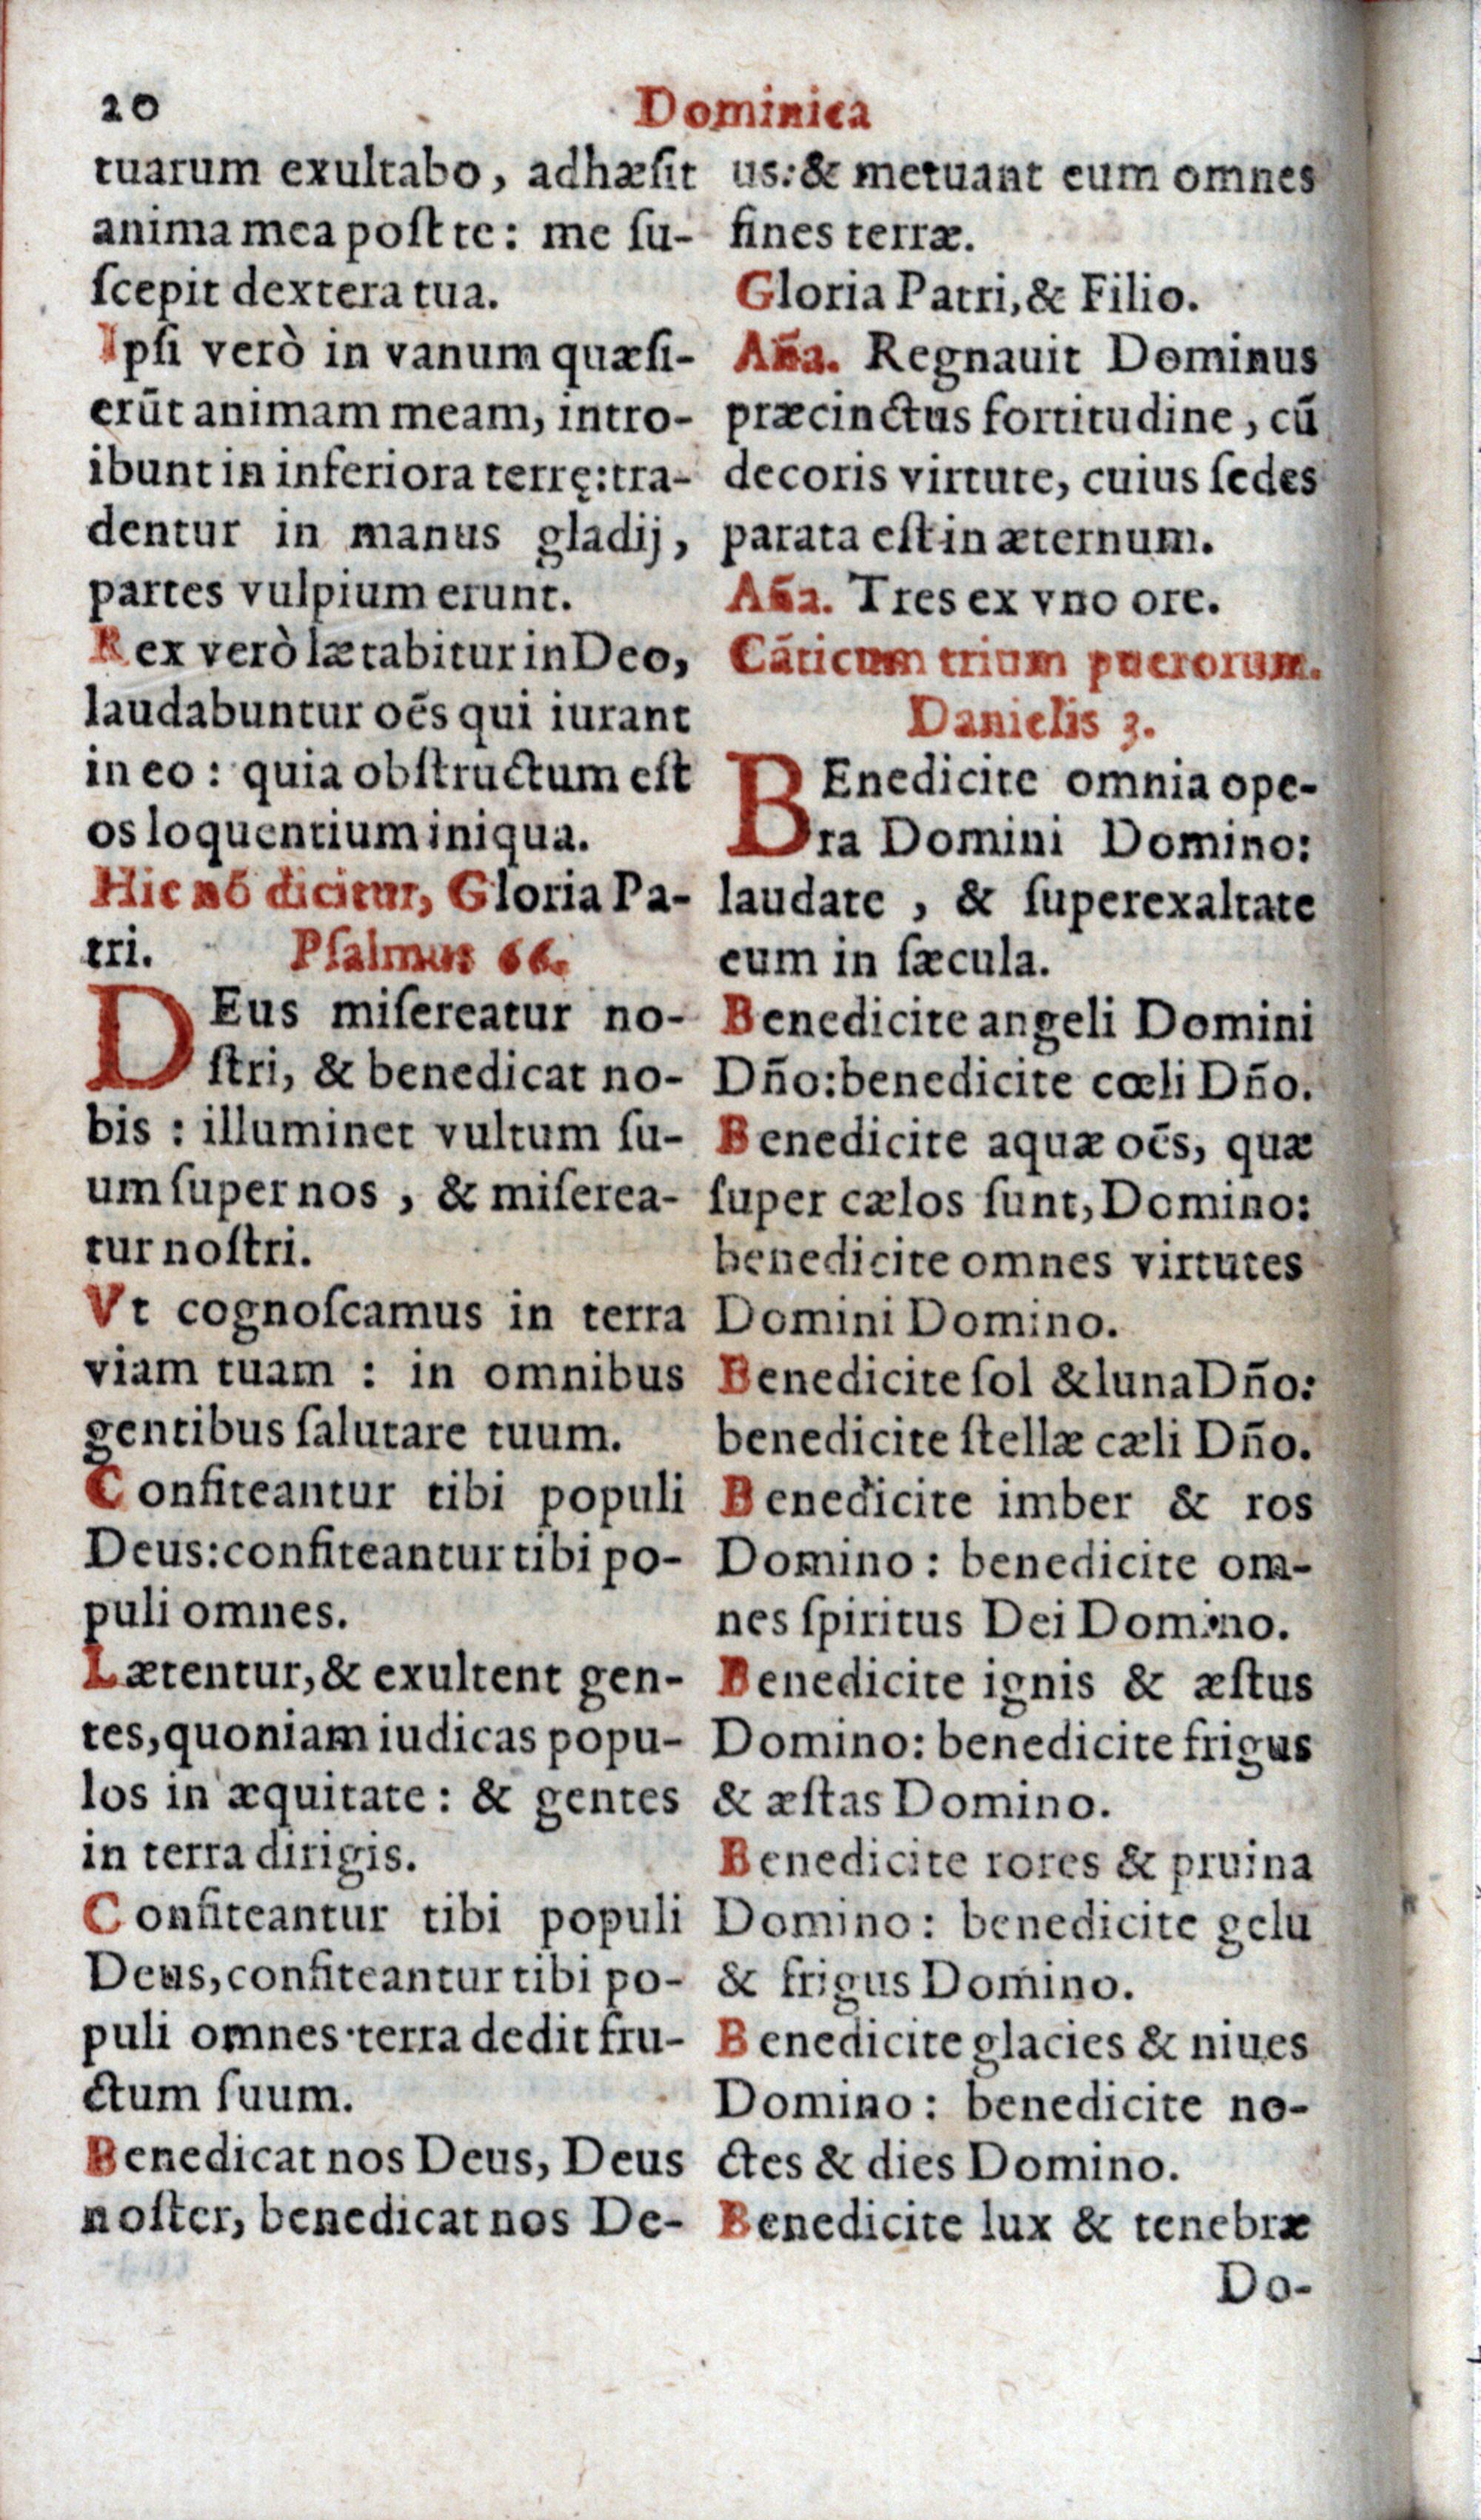 20
Dominica
tuarum exultabo, adhæſit
anima mea poſt te: me ſu-
ſcepit dextera tua.
Ipſi verò in vanum quæſi-
erūt animam meam, intro-
ibunt in inferiora terrę: tra-
dentur in manus gladij,
partes vulpium erunt.
Rex verò lætabitur in Deo,
laudabuntur oēs qui iurant
in eo: quia obſtructum eſt
os loquentium iniqua.
Hic nō dicitur, Gloria Pa-
tri. Pſalmus 66.
DEus miſereatur no-
ſtri, & benedicat no-
bis: illuminet vultum ſu-
um ſuper nos, & miſerea-
tur noſtri.
Vt cognoſcamus in terra
viam tuam: in omnibus
gentibus ſalutare tuum.
Confiteantur tibi populi
Deus: confiteantur tibi po-
puli omnes.
Lætentur, & exultent gen-
tes, quoniam iudicas popu-
los in æquitate: & gentes
in terra dirigis.
Confiteantur tibi populi
Deus, confiteantur tibi po-
puli omnes·terra dedit fru-
ctum ſuum.
Benedicat nos Deus, Deus
noſter, benedicat nos De-
us: & metuant eum omnes
fines terræ.
Gloria Patri, & Filio.
Añа. Regnauit Dominus
præcinctus fortitudine, cū
decoris virtute, cuius ſedes
parata eſt in æternum.
Aña. Tres ex vno ore.
Cāticum trium puerorum.
Danielis 3.
BEnedicite omnia ope-
ra Domini Domino:
laudate, & ſuperexaltate
eum in ſæcula.
Benedicite angeli Domini
Dño: benedicite cœli Dño.
Benedicite aquæ oēs, quæ
ſuper cælos ſunt, Domino:
benedicite omnes virtutes
Domini Domino.
Benedicite ſol & luna Dño:
benedicite ſtellæ cæli Dño.
Benedicite imber & ros
Domino: benedicite om-
nes ſpiritus Dei Domino.
Benedicite ignis & æſtus
Domino: benedicite frigus
& æſtas Domino.
Benedicite rores & pruina
Domino: benedicite gelu
& frigus Domino.
Benedicite glacies & niues
Domino: benedicite no-
ctes & dies Domino.
Benedicite lux & tenebræ
Do-